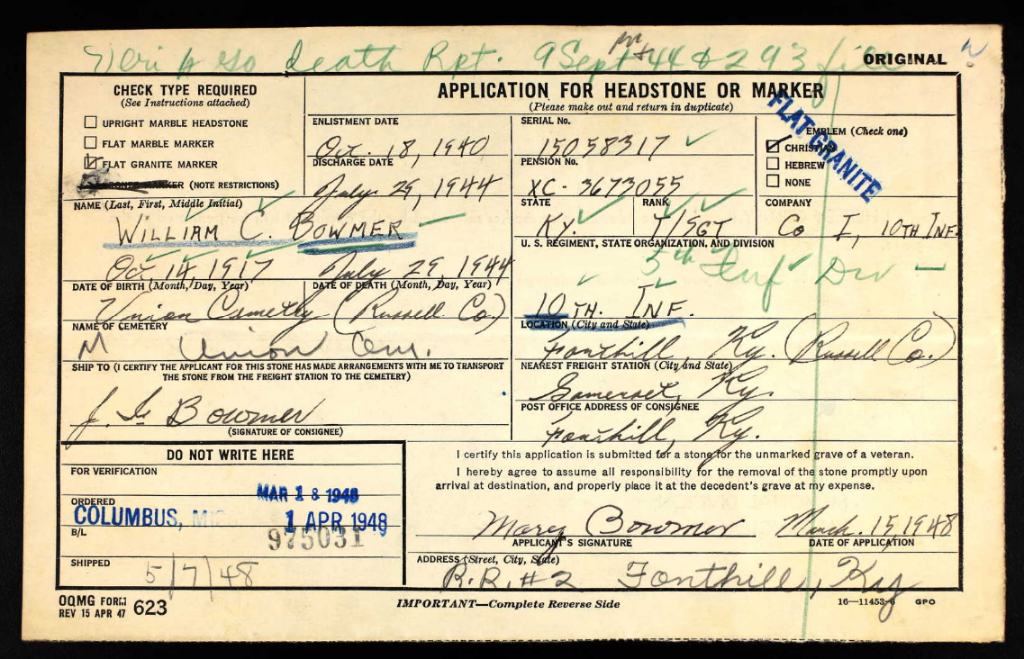 Death Rpt. 9 Sept 44 & 293 file
ORIGINAL
CHECK TYPE REQUIRED
(See Instructions attached)
UPRIGHT MARBLE HEADSTONE
FLAT MARBLE MARKER
FLAT GRANITE MARKER
MARKER (NOTE RESTRICTIONS)
APPLICATION FOR HEADSTONE OR MARKER
(Please make out and return in duplicate)
ENLISTMENT DATE
Oct. 18, 1940
DISCHARGE DATE
July 29, 1944
SERIAL No.
15058317
PENSION No.
XC-3673055
EMBLEM (Check one)
CHRISTIAN
HEBREW
NONE
FLAT GRANITE
NAME (Last, First, Middle Initial)
WILLIAM C. BOWMER
STATE
KY.
RANK
T/SGT
COMPANY
Co I, 10TH INF.
U. S. REGIMENT, STATE ORGANIZATION, AND DIVISION
5th Inf Div
10TH. INF.
Oct. 14, 1917
DATE OF BIRTH (Month, Day, Year)
July 29, 1944
DATE OF DEATH (Month, Day, Year)
Union Cemetery (Russell Co.)
NAME OF CEMETERY
M Union Cem.
LOCATION (City and State)
Fonthill, Ky. (Russell Co.)
SHIP TO (I CERTIFY THE APPLICANT FOR THIS STONE HAS MADE ARRANGEMENTS WITH ME TO TRANSPORT
THE STONE FROM THE FREIGHT STATION TO THE CEMETERY)
NEAREST FREIGHT STATION (City and State)
Somerset, Ky.
POST OFFICE ADDRESS OF CONSIGNEE
Fonthill, Ky.
Bowmer
(SIGNATURE OF CONSIGNEE)
DO NOT WRITE HERE
FOR VERIFICATION
MAR 18 1948
ORDERED
COLUMBUS,
1 APR 1948
B/L
975031
SHIPPED
5/7/48
I certify this application is submitted for a stone for the unmarked grave of a veteran.
I hereby agree to assume all responsibility for the removal of the stone promptly upon
arrival at destination, and properly place it at the decedent's grave at my expense.
Mary Bowmer
APPLICANT'S SIGNATURE
March 15 1948
DATE OF APPLICATION
ADDRESS (Street, City, State)
R.R. #2 Fonthill, Ky
OQMG FORM 623
REV 15 APR 47
IMPORTANT—Complete Reverse Side
16—11453-6 GPO